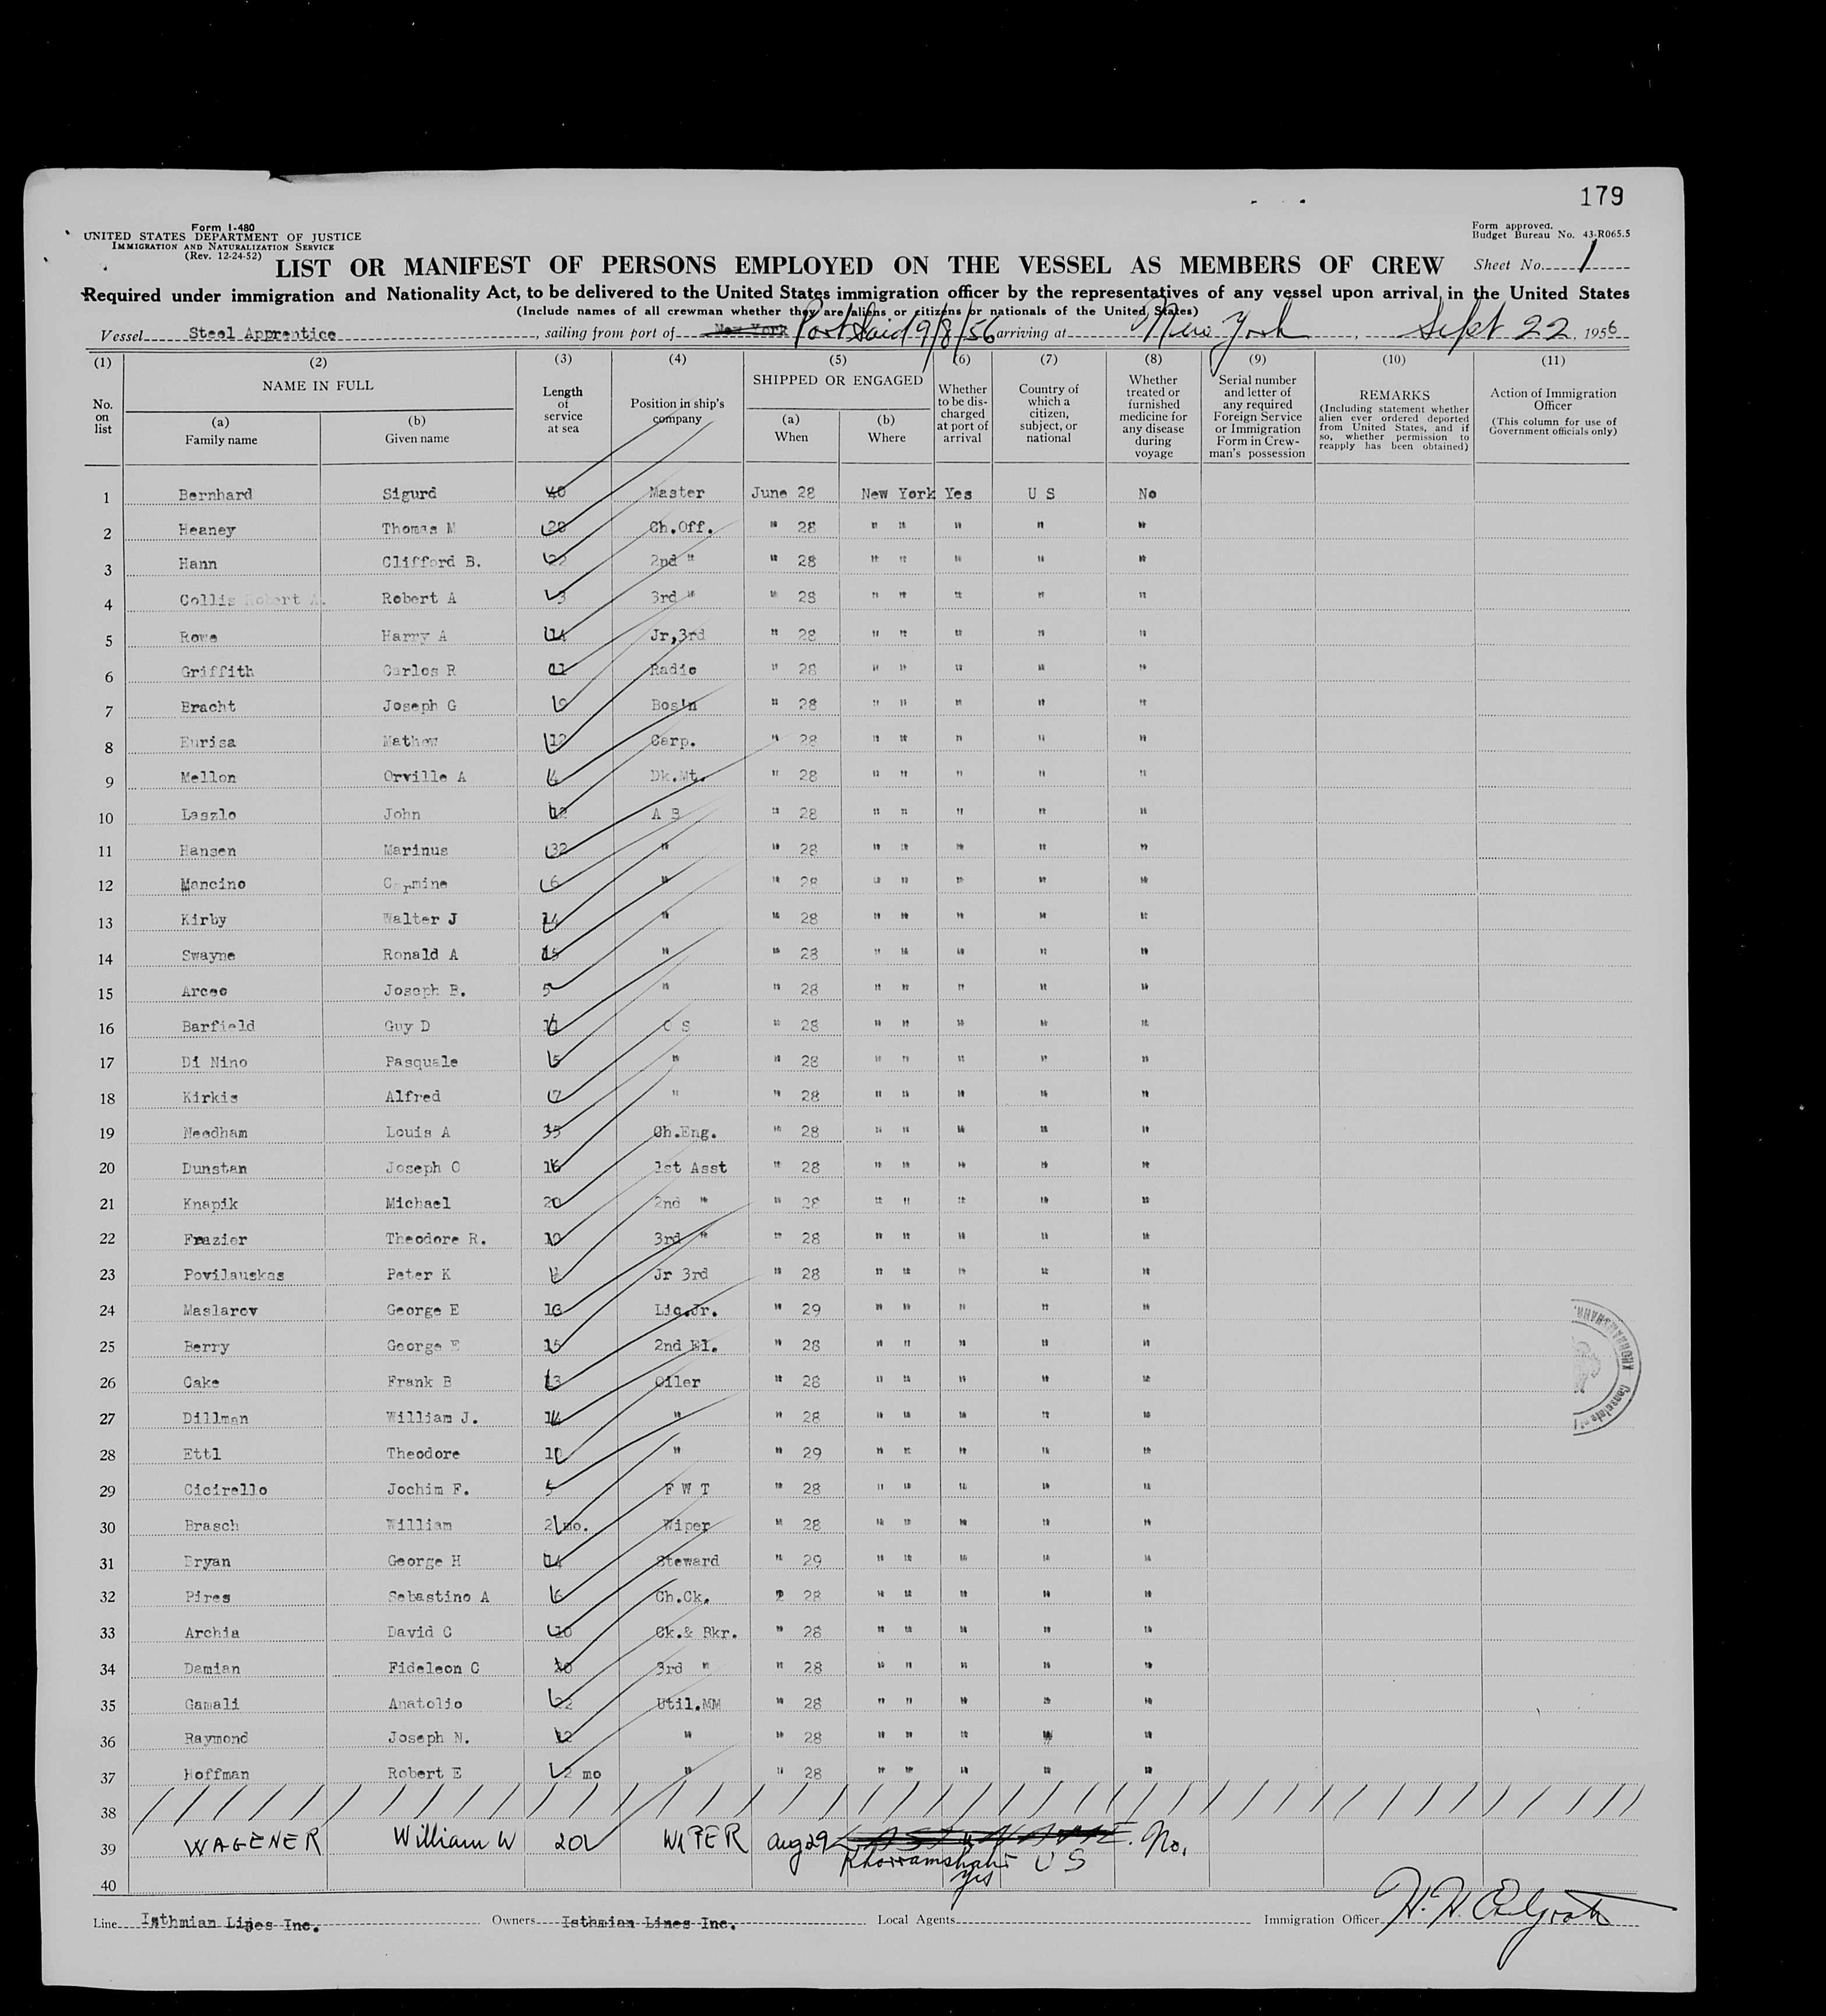 179
Form I-480
UNITED STATES DEPARTMENT OF JUSTICE
IMMIGRATION AND NATURALIZATION SERVICE
(Rev. 12-24-52)
Form approved.
Budget Bureau No. 43-R065.5
LIST OR MANIFEST OF PERSONS EMPLOYED ON THE VESSEL AS MEMBERS OF CREW
Sheet No. 1
Required under immigration and Nationality Act, to be delivered to the United States immigration officer by the representatives of any vessel upon arrival in the United States
(Include names of all crewman whether they are aliens or citizens or nationals of the United States)
Vessel Steel Apprentice, sailing from port of New York Port Said 9/8/56 arriving at New York, Sept 22, 1956
(1) (2) (3) (4) (5) (6) (7) (8) (9) (10) (11)
No. on list
NAME IN FULL
(a) Family name
(b) Given name
Length of service at sea
Position in ship's company
SHIPPED OR ENGAGED
(a) When
(b) Where
Whether to be discharged at port of arrival
Country of which a citizen, subject, or national
Whether treated or furnished medicine for any disease during voyage
Serial number and letter of any required Foreign Service or Immigration Form in Crewman's possession
REMARKS
(Including statement whether alien ever ordered deported from United States, and if so, whether permission to reapply has been obtained)
Action of Immigration Officer
(This column for use of Government officials only)
1 Bernhard Sigurd 40 Master June 28 New York Yes U S No
2 Heaney Thomas M 28 Ch.Off. " 28 " " " " "
3 Hann Clifford B. 22 2nd " " 28 " " " " "
4 Collis Robert A. Robert A 3 3rd " " 28 " " " " "
5 Rowe Harry A 14 Jr,3rd " 28 " " " " "
6 Griffith Carlos R 11 Radio " 28 " " " " "
7 Bracht Joseph G 9 Bos'n " 28 " " " " "
8 Eurisa Mathew 12 Carp. " 28 " " " " "
9 Mellon Orville A 4 Dk.Mt. " 28 " " " " "
10 Laszlo John 12 A B " 28 " " " " "
11 Hansen Marinus 32 " " 28 " " " " "
12 Mancino Carmine 6 " " 28 " " " " "
13 Kirby Walter J 14 " " 28 " " " " "
14 Swayne Ronald A 15 " " 28 " " " " "
15 Arceo Joseph B. 5 " " 28 " " " " "
16 Barfield Guy D 11 O S " 28 " " " " "
17 Di Nino Pasquale 5 " " 28 " " " " "
18 Kirkis Alfred 7 " " 28 " " " " "
19 Needham Louis A 35 Ch.Eng. " 28 " " " " "
20 Dunstan Joseph O 16 1st Asst " 28 " " " " "
21 Knapik Michael 20 2nd " " 28 " " " " "
22 Frazier Theodore R. 10 3rd " " 28 " " " " "
23 Povilauskas Peter K Jr 3rd " 28 " " " " "
24 Maslarov George E 16 Lic.Jr. " 29 " " " " "
25 Berry George E 15 2nd El. " 28 " " " " "
26 Cake Frank B 13 Oiler " 28 " " " " "
27 Dillman William J. 14 " " 28 " " " " "
28 Ettl Theodore 10 " " 29 " " " " "
29 Cicirello Jochim F. 5 F W T " 28 " " " " "
30 Brasch William 2 mo. Wiper " 28 " " " " "
31 Bryan George H 14 Steward " 29 " " " " "
32 Pires Sebastino A 6 Ch.Ck. " 28 " " " " "
33 Archia David C 16 Ck.& Bkr. " 28 " " " " "
34 Damian Fideleon C 20 3rd " " 28 " " " " "
35 Gamali Anatolio 22 Util.MM " 28 " " " " "
36 Raymond Joseph N. 12 " " 28 " " " " "
37 Hoffman Robert E 2 mo " " 28 " " " " "
38
39 WAGENER William W 20 WIPER Aug 29 Khorramshahr Yes U S No.
40
Line Isthmian Lines Inc. Owners Isthmian Lines Inc. Local Agents Immigration Officer
KHORRAMSHAHR